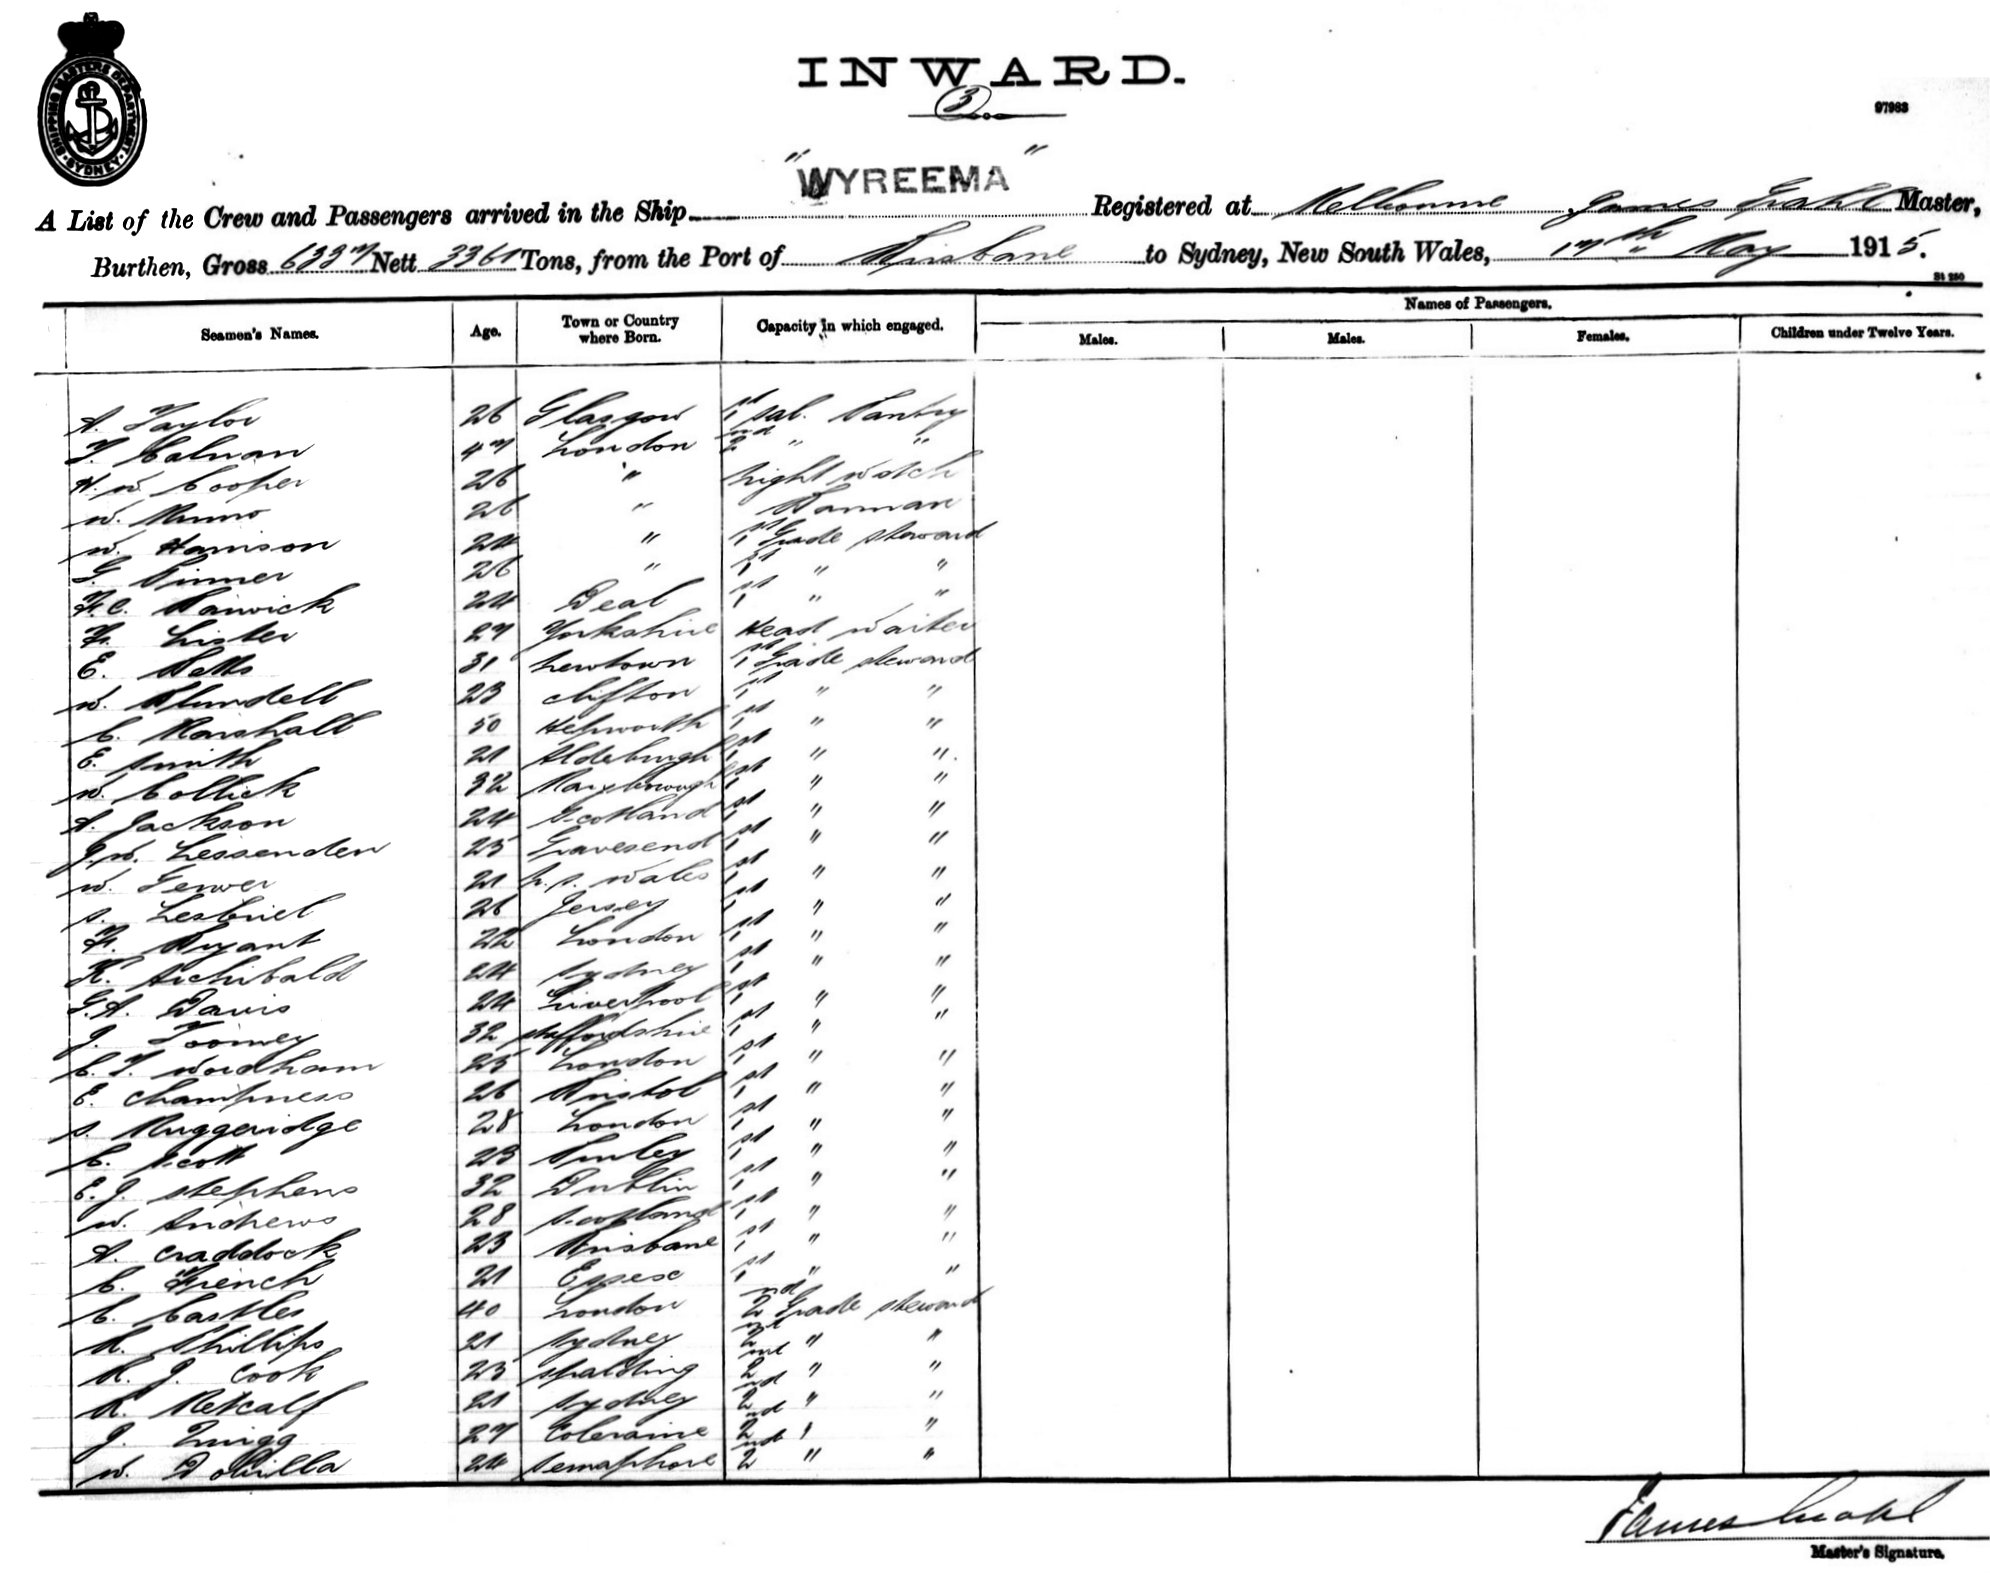 SHIPPING MASTERS DEPARTMENT · SYDNEY ·
INWARD.
3
97983
"WYREEMA"
A List of the Crew and Passengers arrived in the Ship Registered at Melbourne James Grahl Master,
Burthen, Gross 6337 Nett 3361 Tons, from the Port of Brisbane to Sydney, New South Wales, 17th May 1915.
St 250
Names of Passengers.
Seamen's Names. Age. Town or Country where Born. Capacity in which engaged. Males. Males. Females. Children under Twelve Years.
A. Taylor 26 Glasgow 1st Sal. Pantry
T. Calnan 47 London 2nd " "
H. W. Cooper 26 " Night Watch
W. Munro 26 " Barman
W. Harrison 24 " 1st Grade Steward
G. Pinner 26 " 1st " "
F. C. Barwick 24 Deal 1st " "
F. Lister 27 Yorkshire Head Waiter
E. Betts 31 Newtown 1st Grade Steward
W. Blundell 23 Clifton 1st " "
C. Marshall 50 Hepworth 1st " "
E. Smith 21 Aldeburgh 1st " "
W. Collick 32 Maryborough 1st " "
A. Jackson 24 Scotland 1st " "
J. W. Lessenden 25 Gravesend 1st " "
W. Gerver 21 N. S. Wales 1st " "
S. Lesbriel 26 Jersey 1st " "
F. Bryant 22 London 1st " "
R. Archibald 24 Sydney 1st " "
G. A. Davis 24 Liverpool 1st " "
J. Toomey 32 Staffordshire 1st " "
C. T. Wordham 25 London 1st " "
E. Champness 26 Bristol 1st " "
S. Muggeridge 28 London 1st " "
C. Scott 23 1st " "
E. J. Stephens 32 Dublin 1st " "
W. Andrews 28 Scotland 1st " "
A. Craddock 23 Brisbane 1st " "
C. French 21 Essex 1st " "
C. Castles 40 London 2nd Grade Steward
R. Phillips 21 Sydney 2nd " "
R. J. Cook 25 Spalding 2nd " "
R. Metcalf 21 Sydney 2nd " "
J. Quigg 27 Coleraine 2nd " "
W. 24 Semaphore 2nd " "
James Grahl
Master's Signature.